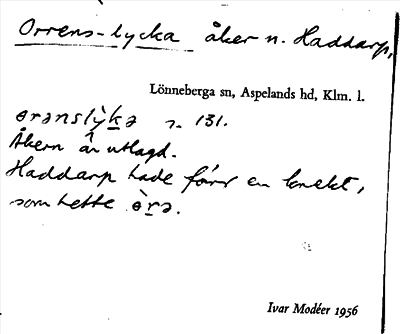 Orrens-lycka åker n. Haddarp,
Lönneberga sn, Aspelands hd, Klm. l.
ɵrənslỳkə n. 131.
Åkern är utlagd.
Haddarp hade förr en knekt,
som hette ɵ̀rə.
Ivar Modéer 1956